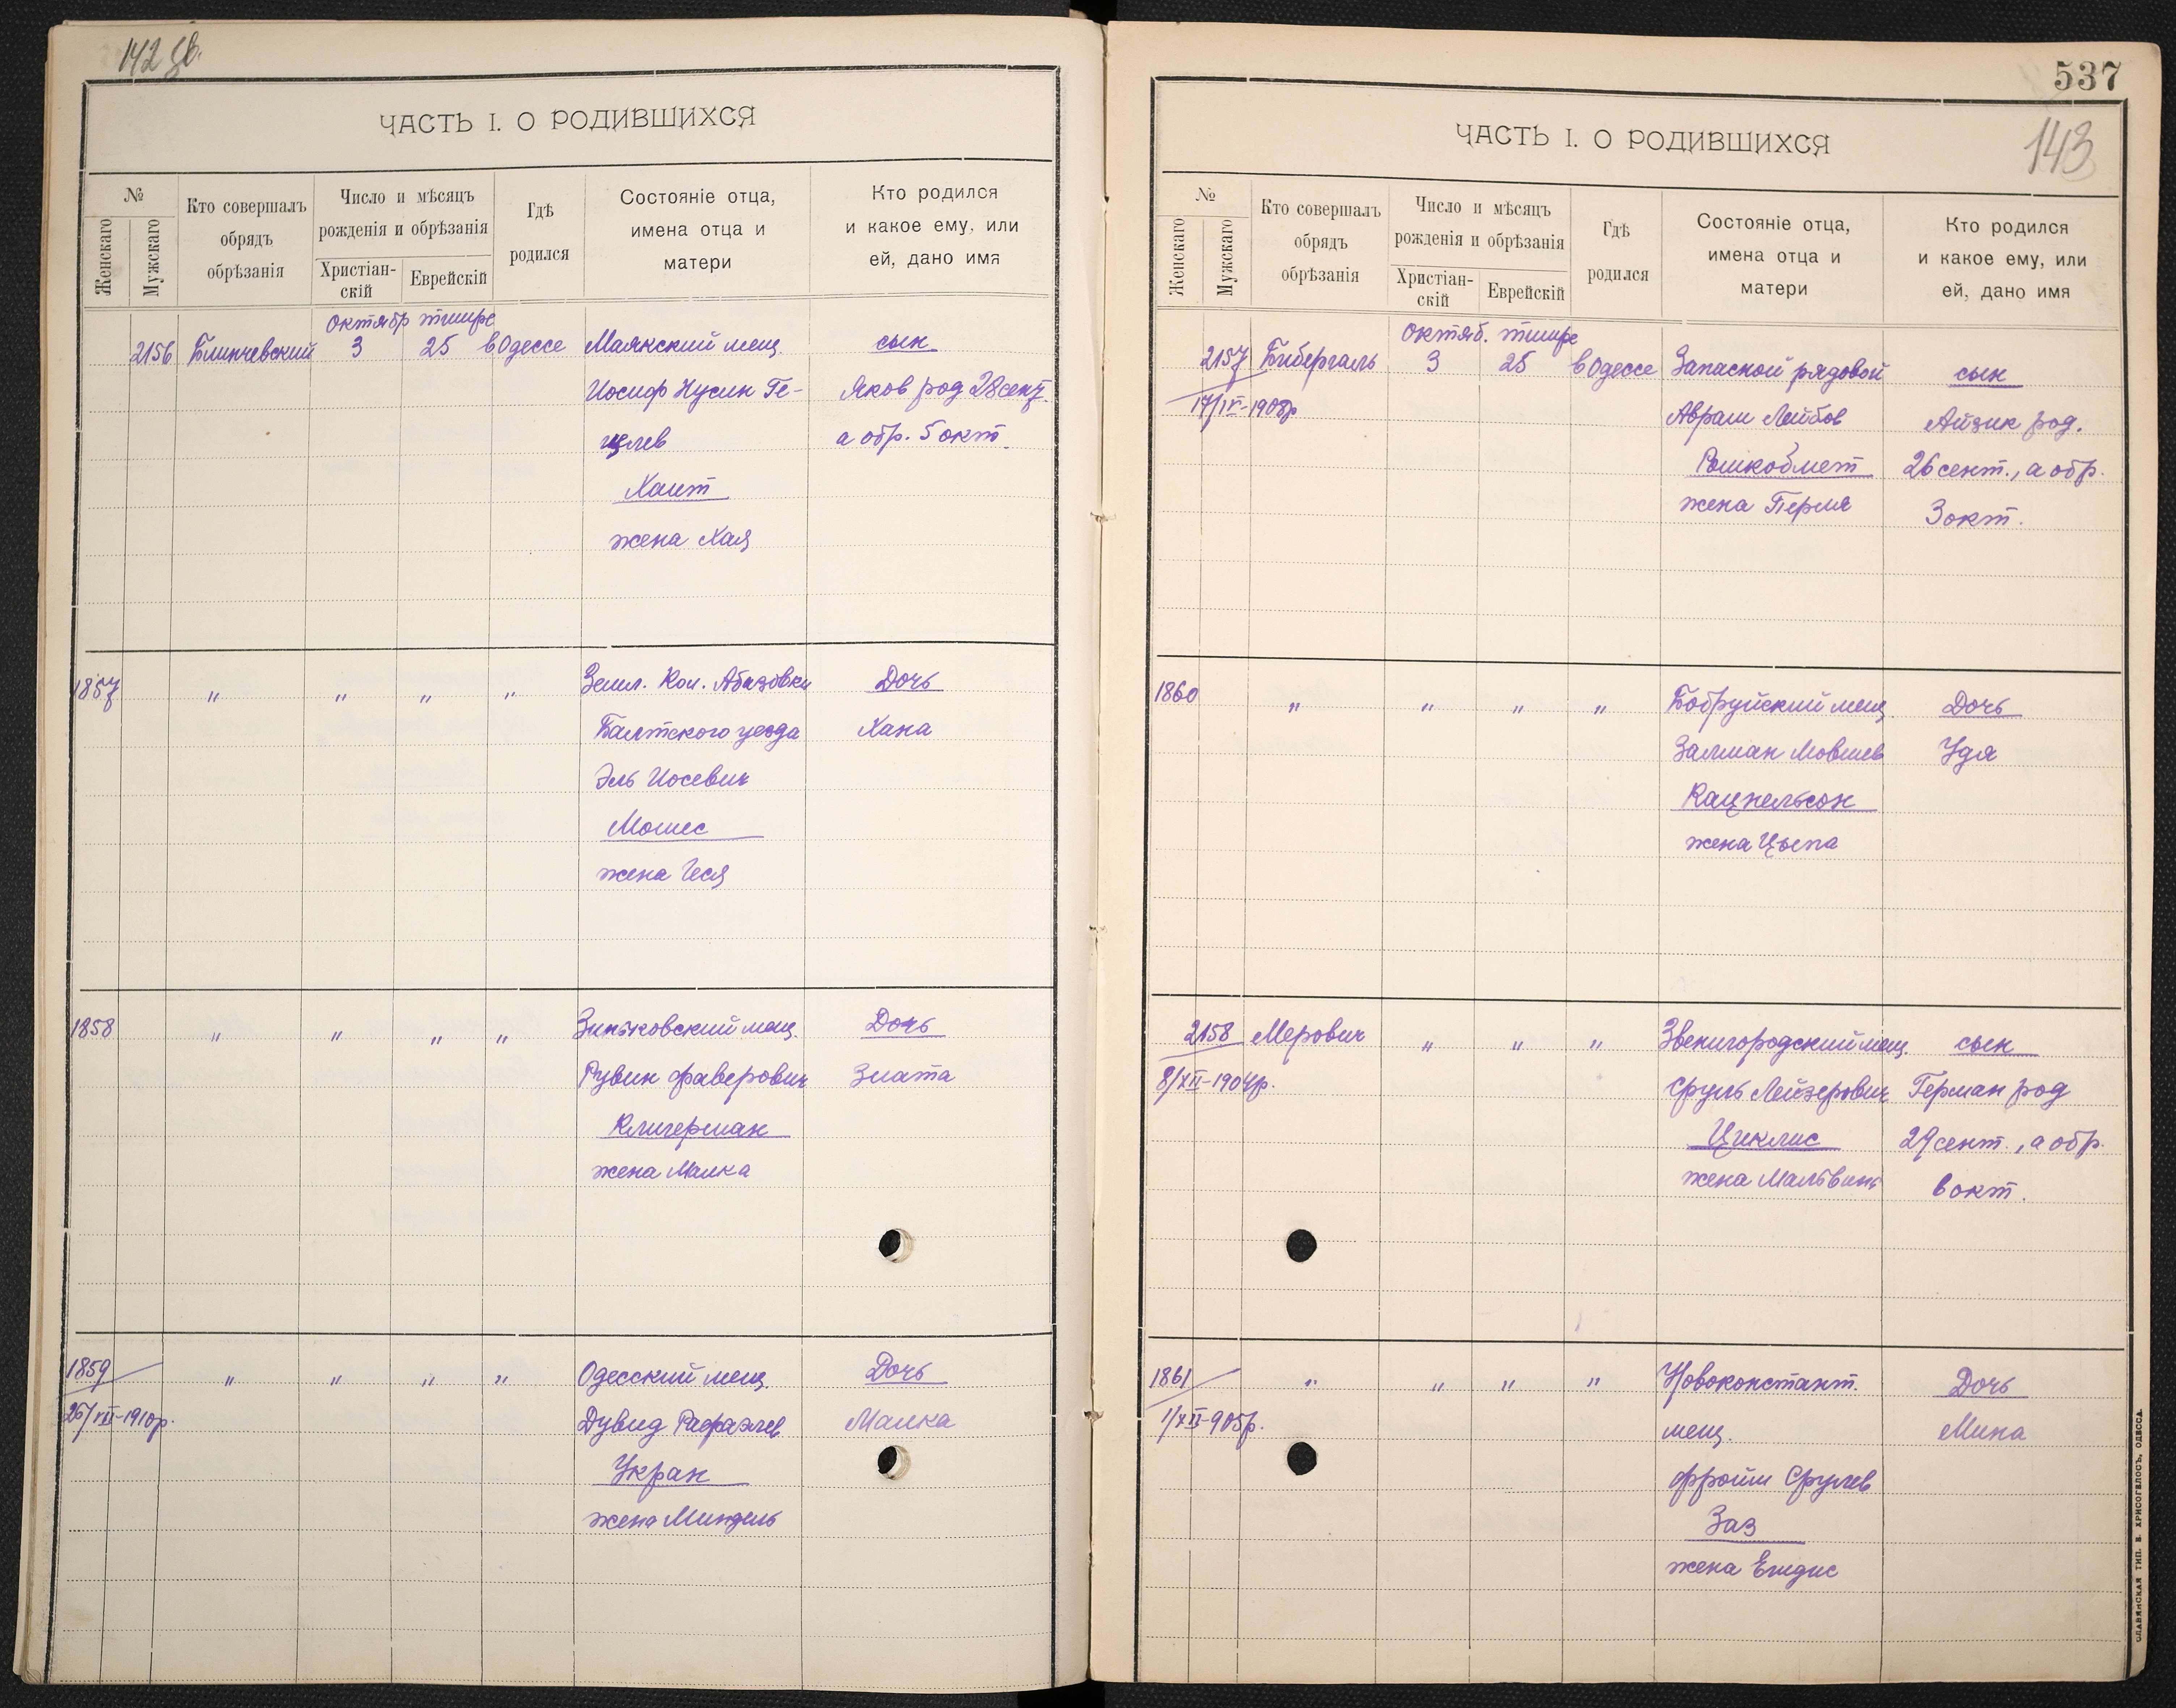 142 зв.
ЧАСТЬ I. О РОДИВШИХСЯ
№
Женскаго
Мужскаго
Кто совершалъ
обрядъ
обрѣзанія
Число и мѣсяцъ
рожденія и обрѣзанія
Христіан-
скій
Еврейскій
Гдѣ
родился
Состояніе отца,
имена отца и
матери
Кто родился
и какое ему, или
ей, дано имя
октябр тишре
2156 Блинчевский 3 25 в Одессе Маякский мещ. сын
Иосиф Нусин Ге- Яков род 28 сент.
цлев а обр. 5 окт.
Хаит
жена Хая
1857 " " " " Земл. Кол. Абазовки Дочь
Балтского уезда Хана
Эль Иосевич
Мошес
жена Геся
1858 " " " " Зиньковский мещ. Дочь
Рувин Фаверович Злата
Клигерман
жена Малка
1859 " " " " Одесский мещ. Дочь
26/VII-1910р. Дувид Рафаэлев Малка
Укран
жена Миндель
537
143
ЧАСТЬ I. О РОДИВШИХСЯ
№
Женскаго
Мужскаго
Кто совершалъ
обрядъ
обрѣзанія
Число и мѣсяцъ
рожденія и обрѣзанія
Христіан-
скій
Еврейскій
Гдѣ
родился
Состояніе отца,
имена отца и
матери
Кто родился
и какое ему, или
ей, дано имя
октяб. тишре
2157 Бибергаль 3 25 в Одессе Запасной рядовой сын
Абрам Лейбов Айзик род.
26 сент., а обр.
жена Перля 3 окт.
1860 " " " " Бобруйский мещ. Дочь
Залман Мовшев Удя
Кацнельсон
жена Цыпа
2158 Мерович " " " Звенигородский мещ. сын
8/XII-1904р. Сруль Лейзерович Герман род
Циклис 29 сент., а обр.
жена Мальвина 6 окт.
1861 " " " " Новоконстант. Дочь
1/XII-905р. мещ. Мина
Фроим Срулев
Заз
жена Ендис
СЛАВЯНСКАЯ ТИП. В. ХРИСОГЕЛОСЪ, ОДЕССА.